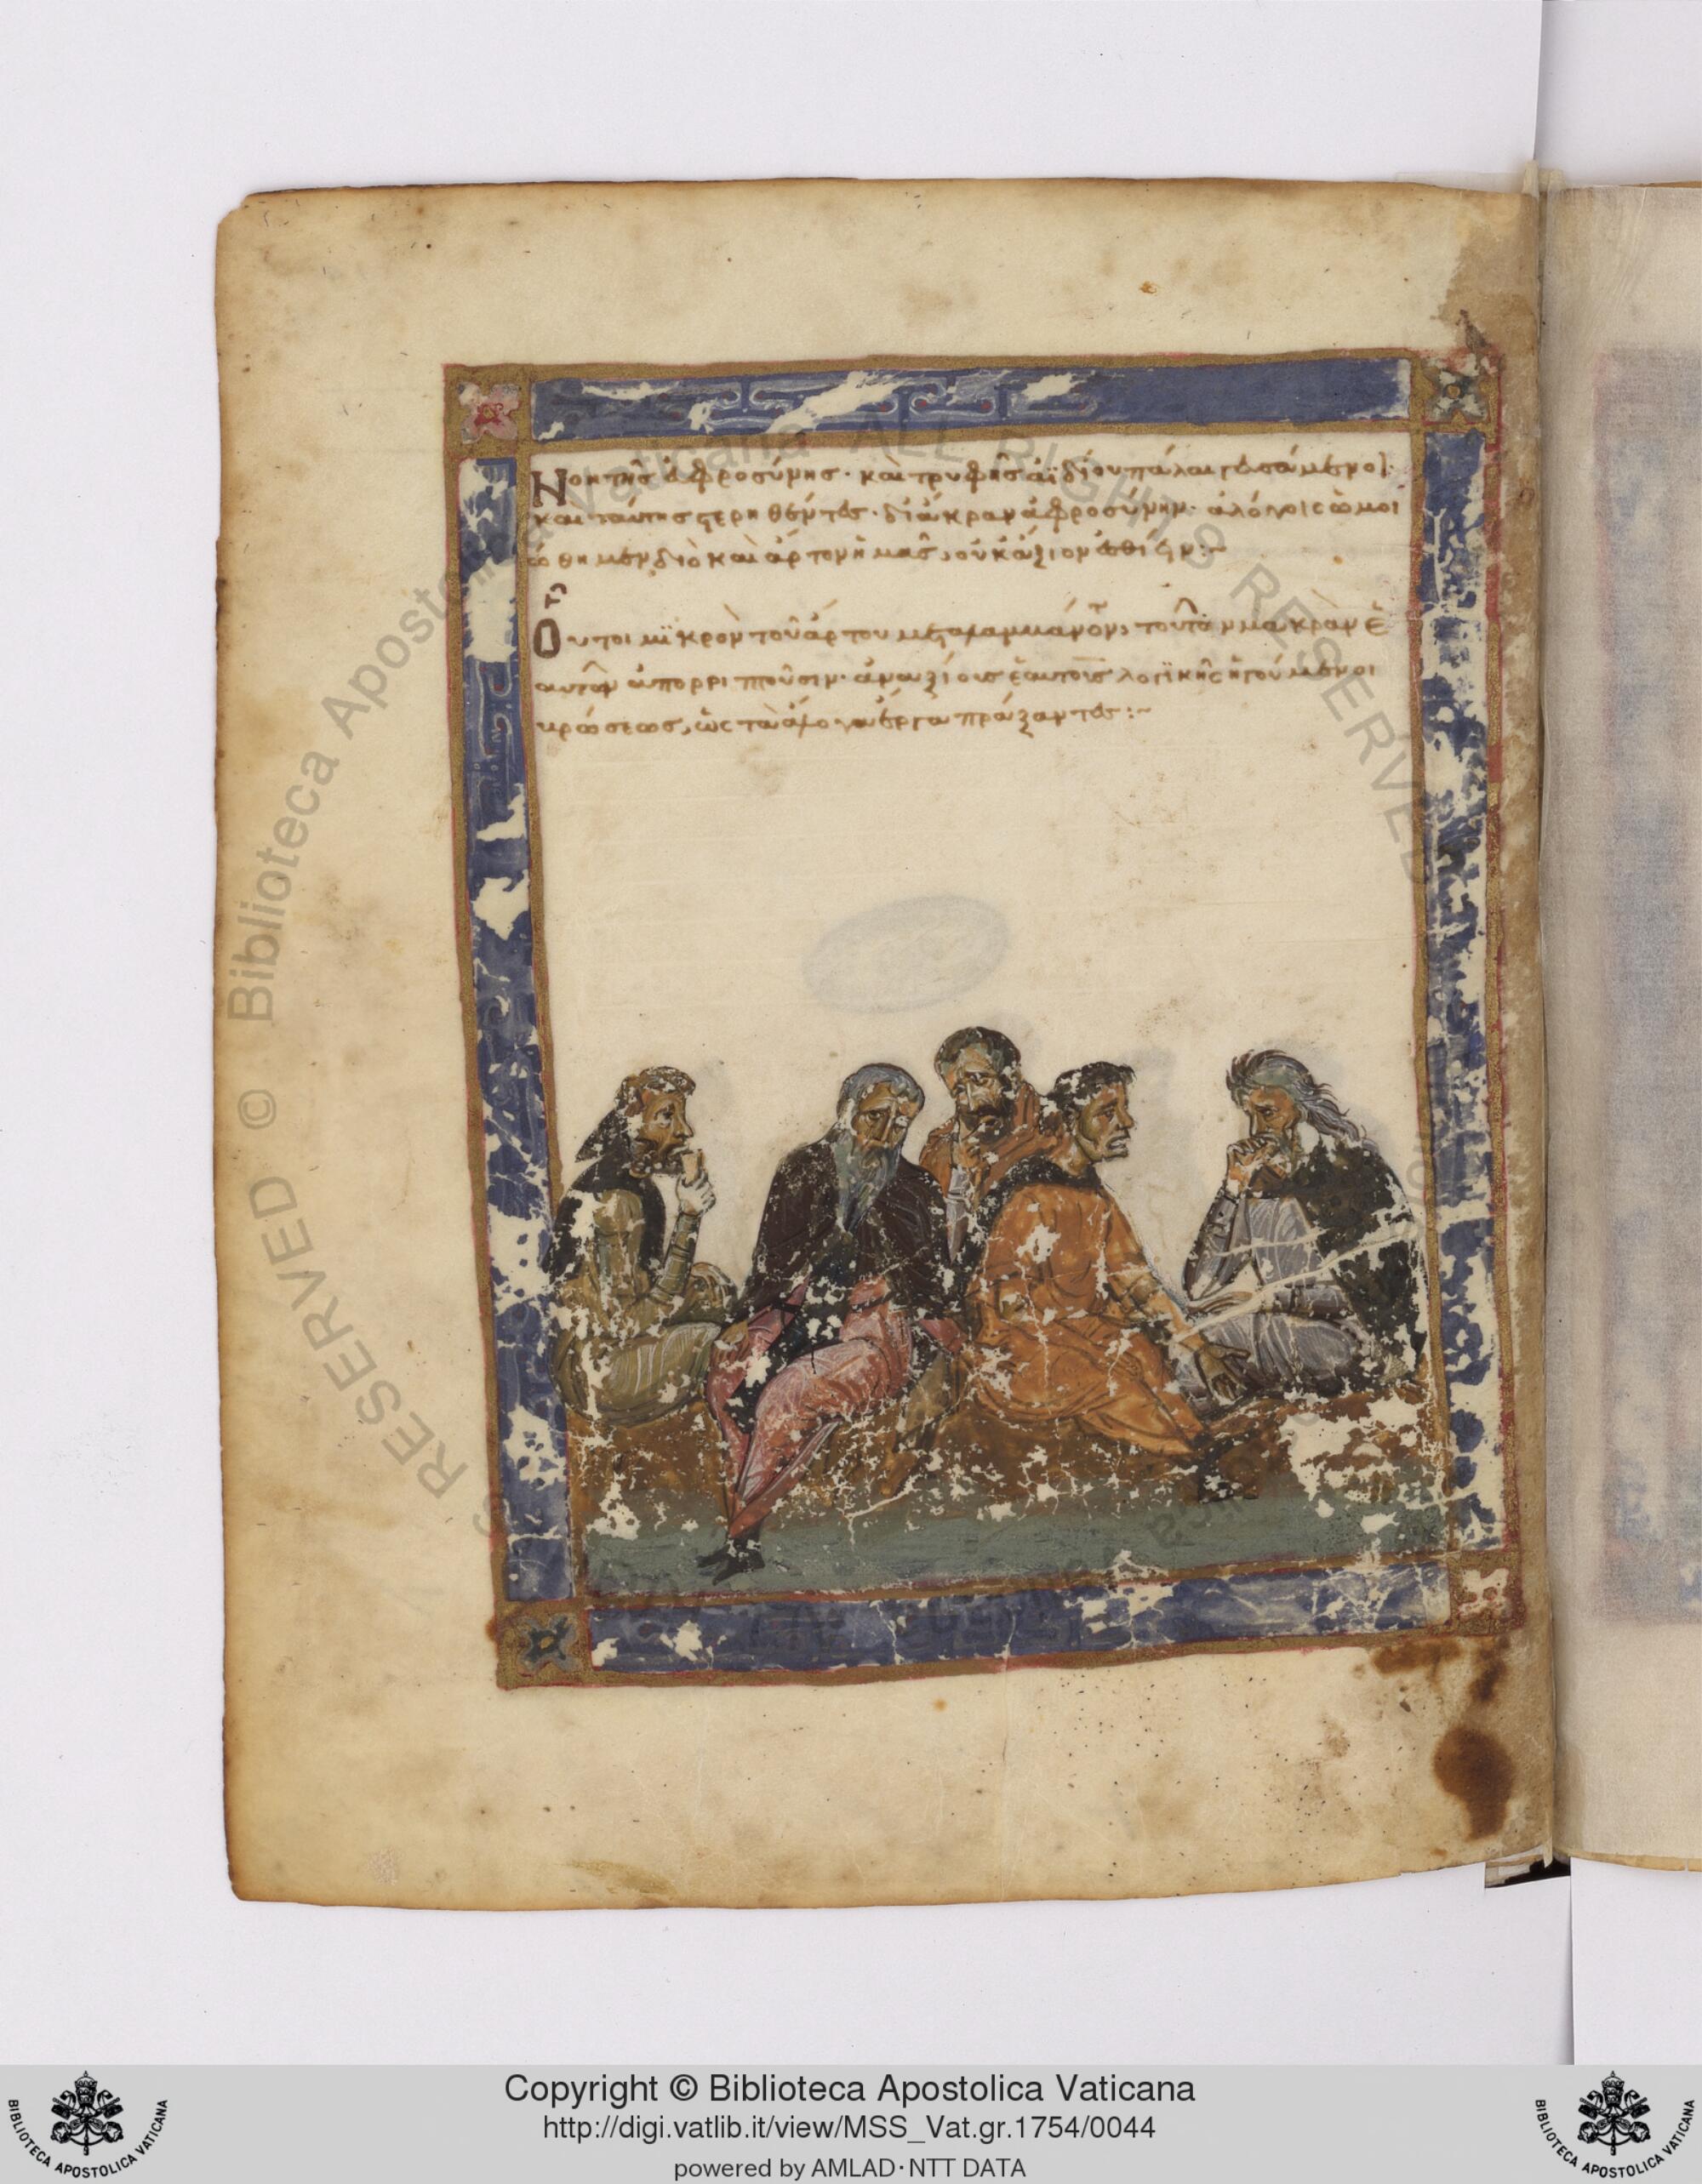 Νοητῆς εὐφροσύνης· καὶ τρυφῆς ἀϊδίου πάλαι γευσάμενοι·
καὶ ταύτης στερηθέντες· δι' ἄκραν ἀφροσύνην· ἀλόγοις ὡμοι
ώθημεν διὸ καὶ ἄρτον ἡμᾶς, οὐκ ἄξιον ἐσθίειν:~
Οὗτοι μικρὸν τοῦ ἄρτου μεταλαμβάνοντες, τοῦτον μακρὰν ἑ
αυτῶν ἀπορριπτοῦσιν· ἀναξίους ἑαυτοὺς λογικῆς ἡγούμενοι
βρώσεως, ὡς τὰ ἄλογα ἔργα πράξαντες:~
Biblioteca Apostolica Vaticana ALL RIGHTS RESERVED ©
Copyright © Biblioteca Apostolica Vaticana
http://digi.vatlib.it/view/MSS_Vat.gr.1754/0044
powered by AMLAD·NTT DATA
BIBLIOTECA APOSTOLICA VATICANA
BIBLIOTECA APOSTOLICA VATICANA